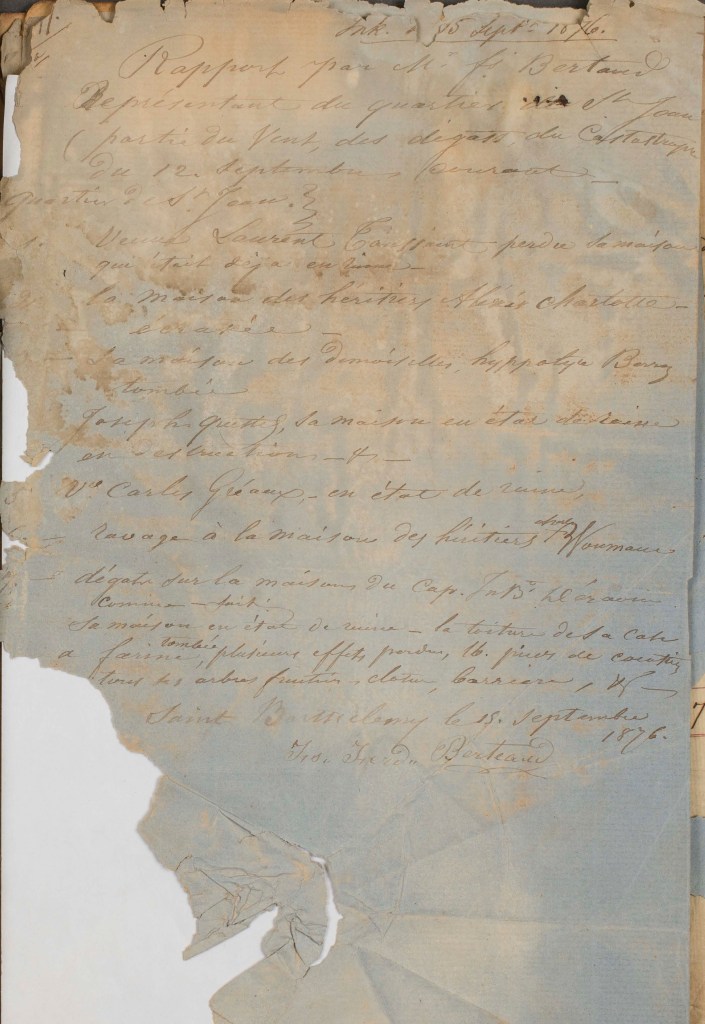 Ink. d. 15 Septr. 1876.
Rapport par Mr. fs. Bertaud
Représentant du quartier St Jean
(partie du Vent, des dégats du Catastrophe
du 12. Septembre, courant –
Quartier de St. Jean.
1. Veuve Laurent Toussaint – perdue sa maison
qui était déja en ruine
2. la maison des héritiers Alexis Charlotte –
écrasée –
– La maison des demoiselles, hyppolyte
tombée
Joseph , sa maison en état de ruine
en destructions – & –
5 Ve Carles Gréaux, – en état de ruine,
– ravage à la maison des héritiers
– dégats sur la maison du Cap. Jn Bte.
comme – suit:
Sa maison en état de ruine – la toiture de sa case
a farine tombée, plusieurs effets perdu, 16. pieces de
tous ses arbres fruitier, cloture, barriere, &c –
Saint Barthélemy le 15. Septembre
1876.
Berteaud